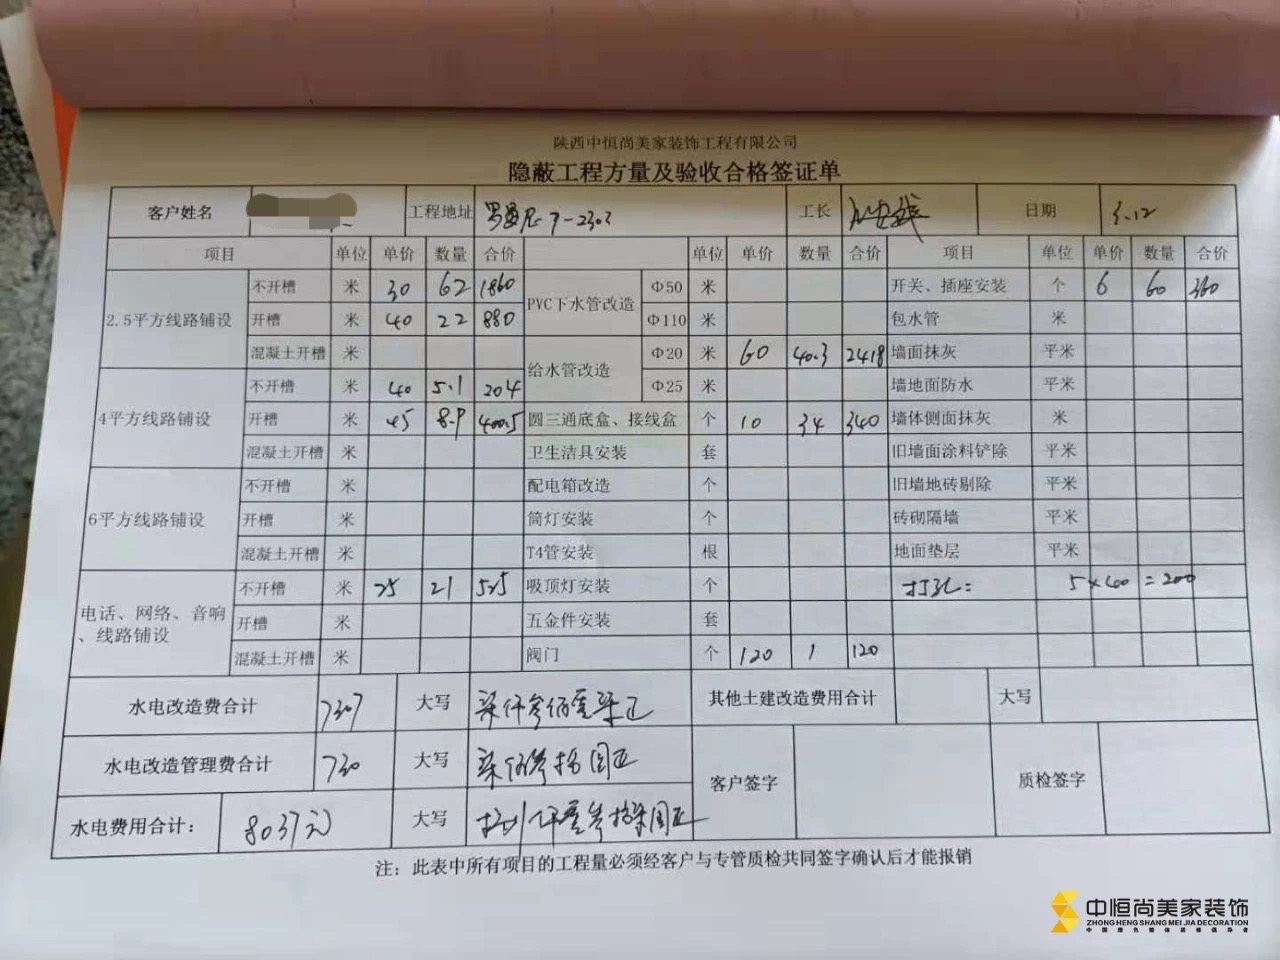 陕西中恒尚美家装饰工程有限公司
隐蔽工程方量及验收合格签证单
客户姓名 工程地址 7-2303 工长 日期 3.12
项目 单位 单价 数量 合价 单位 单价 数量 合价 项目 单位 单价 数量 合价
2.5平方线路铺设 不开槽 米 30 62 1860 PVC下水管改造 Φ50 米 开关、插座安装 个 6 60 360
开槽 米 40 22 880 Φ110 米 包水管 米
混凝土开槽 米 给水管改造 Φ20 米 60 40.3 2418 墙面抹灰 平米
4平方线路铺设 不开槽 米 40 5.1 204 Φ25 米 墙地面防水 平米
开槽 米 45 8.9 400.5 圆三通底盒、接线盒 个 10 34 340 墙体侧面抹灰 米
混凝土开槽 米 卫生洁具安装 套 旧墙面涂料铲除 平米
6平方线路铺设 不开槽 米 配电箱改造 个 旧墙地砖剔除 平米
开槽 米 筒灯安装 个 砖砌隔墙 平米
混凝土开槽 米 T4管安装 根 地面垫层 平米
电话、网络、音响、线路铺设 不开槽 米 25 21 525 吸顶灯安装 个 打孔: 5×40=200
开槽 米 五金件安装 套
混凝土开槽 米 阀门 个 120 1 120
水电改造费合计 7307 大写 柒仟叁佰零柒正 其他土建改造费用合计 大写
水电改造管理费合计 730 大写 柒佰叁拾圆正 客户签字 质检签字
水电费用合计: 8037元 大写 捌仟零叁拾柒圆正
注:此表中所有项目的工程量必须经客户与专管质检共同签字确认后才能报销
中恒尚美家装饰
ZHONG HENG SHANG MEI JIA DECORATION